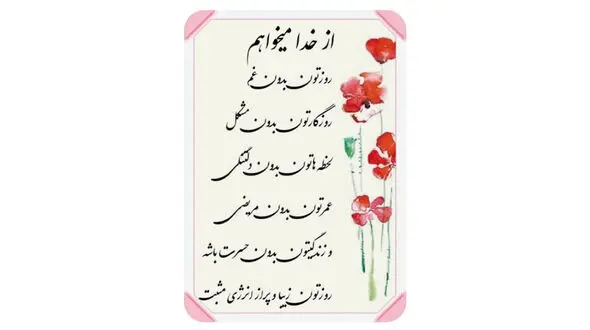 از خدا میخواهم
روزتون بدون غم
روزگارتون بدون مشکل
لحظه هاتون بدون دلتنگی
عمرتون بدون مریضی
و زندگیتون بدون حسرت باشه
روزتون زیبا و پر از انرژی مثبت